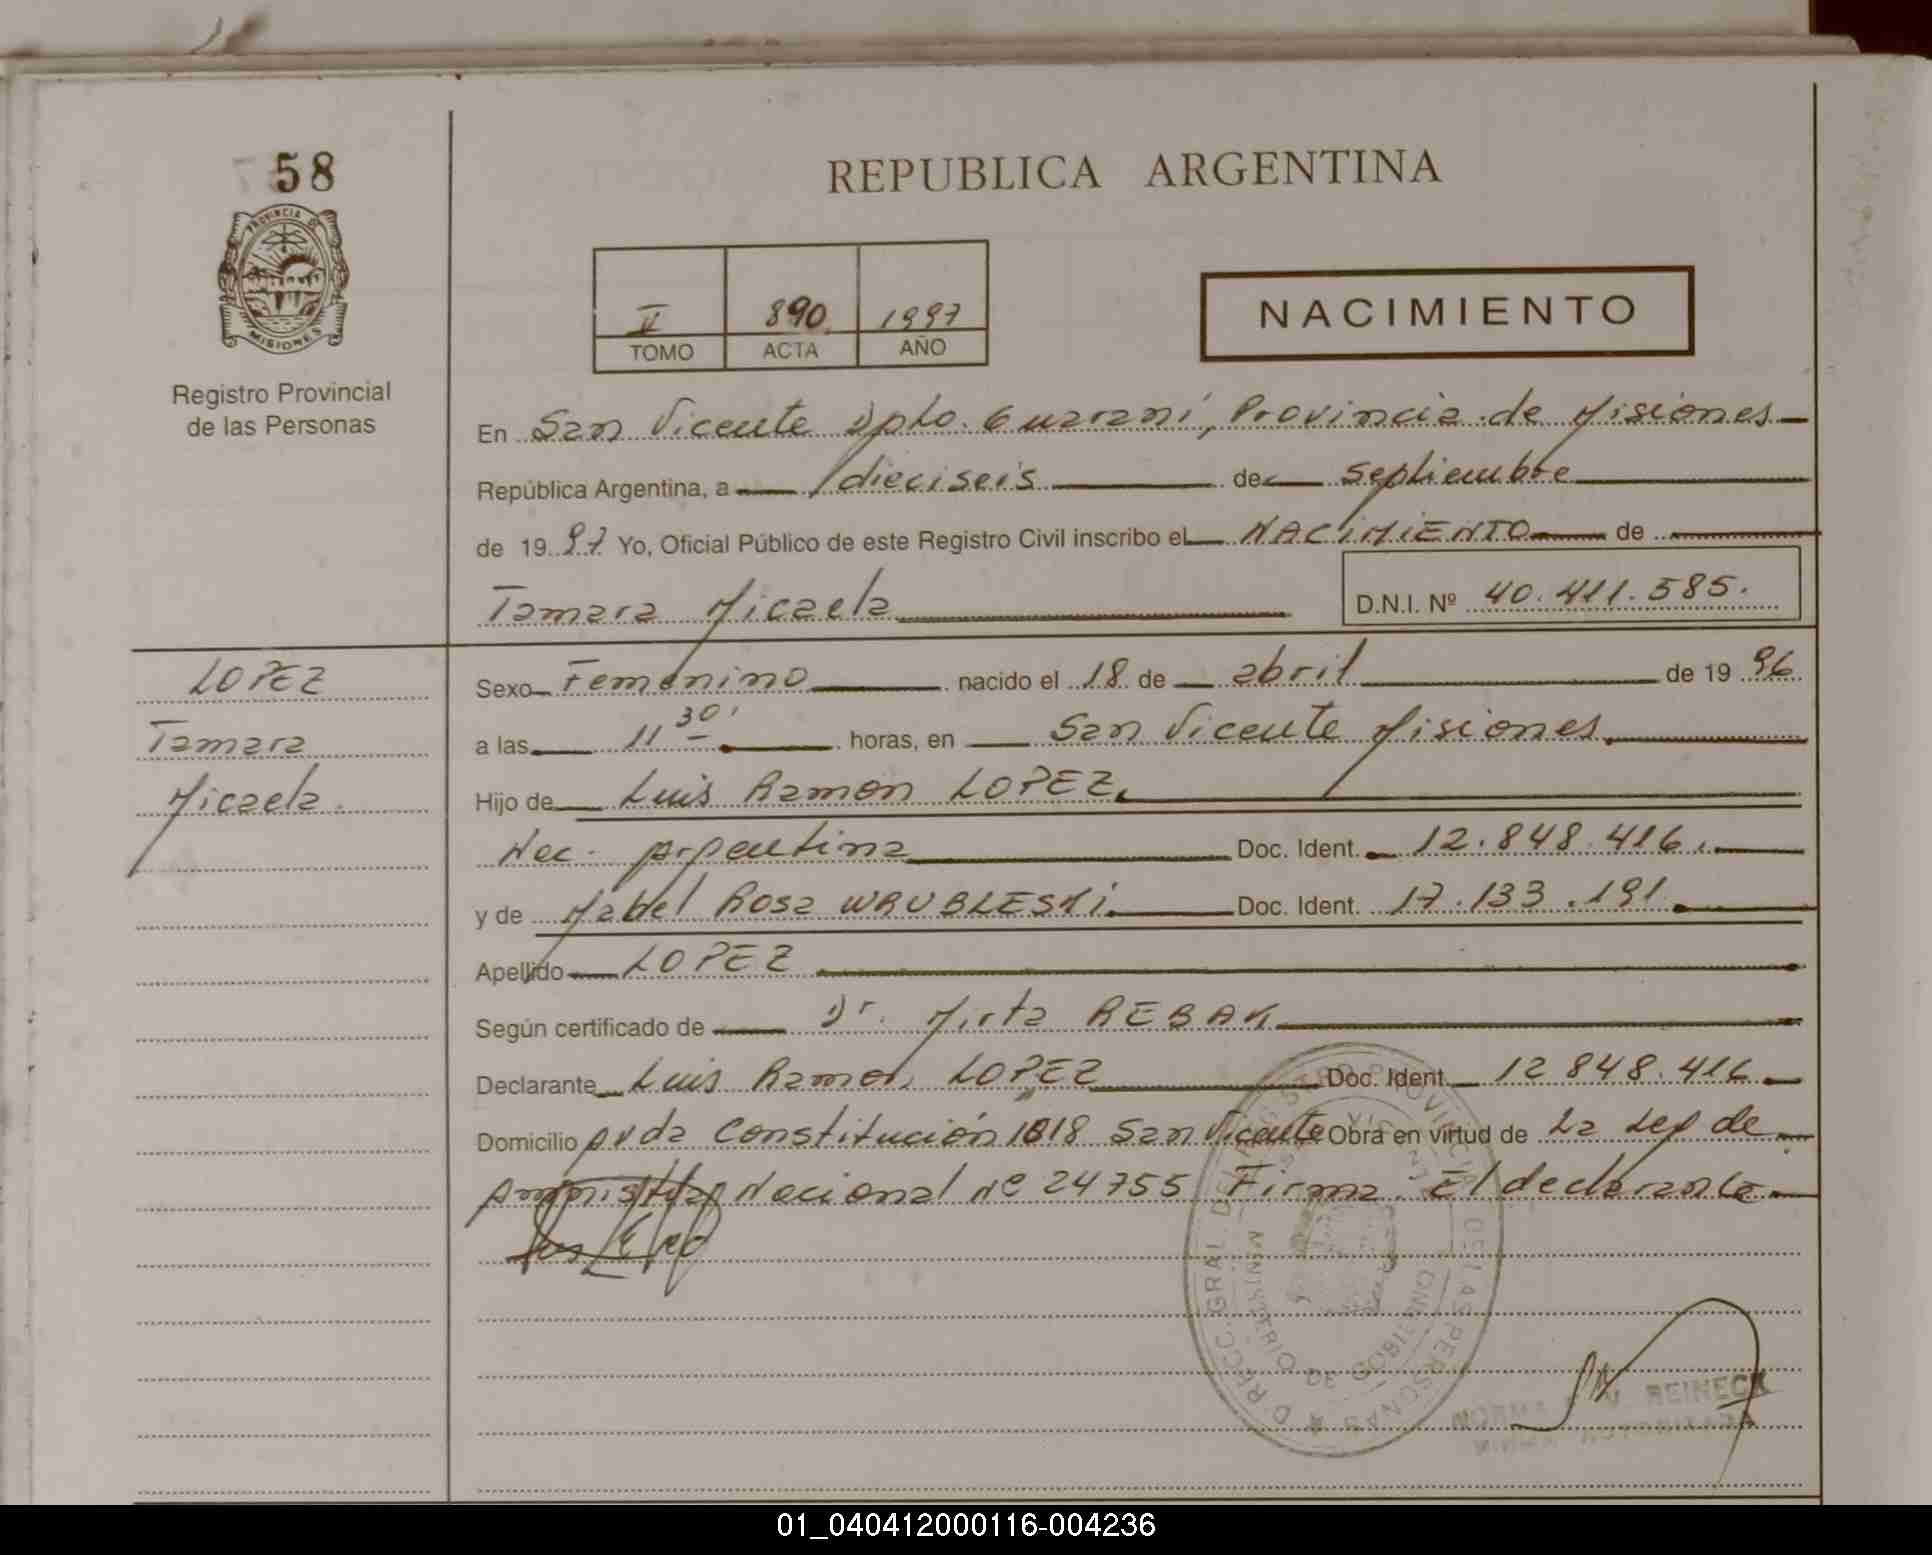 58
REPUBLICA ARGENTINA
PROVINCIA DE
MISIONES
II 890 1997
TOMO ACTA AÑO
NACIMIENTO
Registro Provincial
de las Personas
En San Vicente Dpto. Guaraní, Provincia de Misiones
República Argentina, a dieciseis de septiembre
de 1997 Yo, Oficial Público de este Registro Civil inscribo el NACIMIENTO de
Tamara Micaela D.N.I. Nº 40.411.585.
LOPEZ
Tamara
Micaela.
Sexo Femenino nacido el 18 de abril de 1996
a las 11 30' horas, en San Vicente Misiones.
Hijo de Luis Ramon LOPEZ.
Nac. Argentina Doc. Ident. 12.848.416.
y de Mabel Rosa WRUBLESKI. Doc. Ident. 17.133.191.
Apellido LOPEZ
Según certificado de Dr. Mirta REBAK
Declarante Luis Ramon LOPEZ Doc. Ident. 12 848.416
Domicilio Avda Constitución 1018 San Vicente Obra en virtud de La Ley de
Amnistia Nacional Nº 24755 Firma. El declarante
DIRECC. GRAL. DEL REGISTRO PROVINCIAL DE LAS PERSONAS
MINISTERIO DE GOBIERNO
NORMA V. REINECK